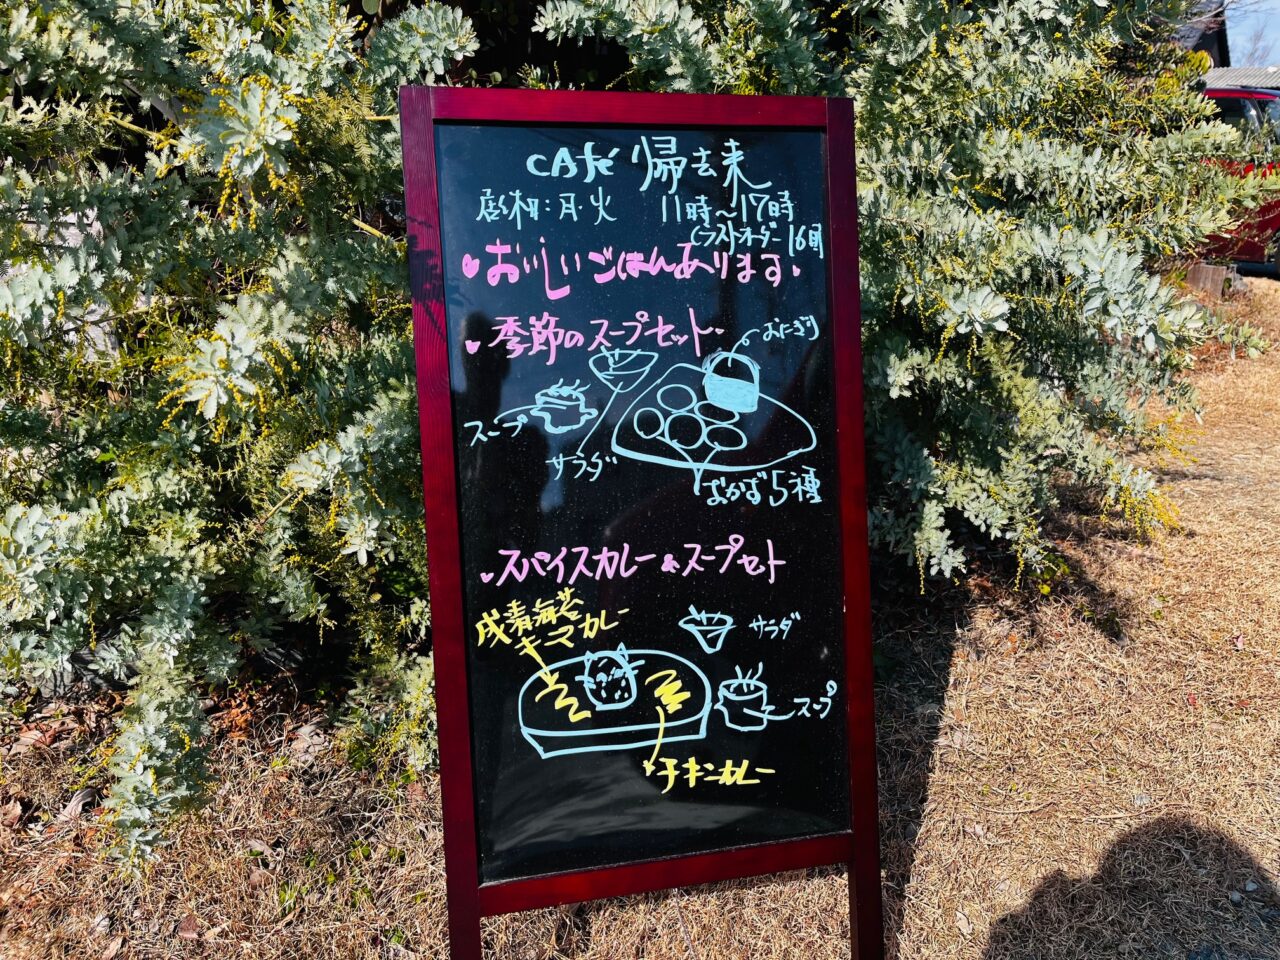 cafe 帰去来
店休:月・火 11時〜17時
(ラストオーダー16時
♥おいしいごはんあります♥
♥季節のスープセット
おにぎり
スープ
サラダ
おかず5種
♥スパイスカレー&スープセット
成清海苔
キーマカレー
サラダ
スープ
チキンカレー